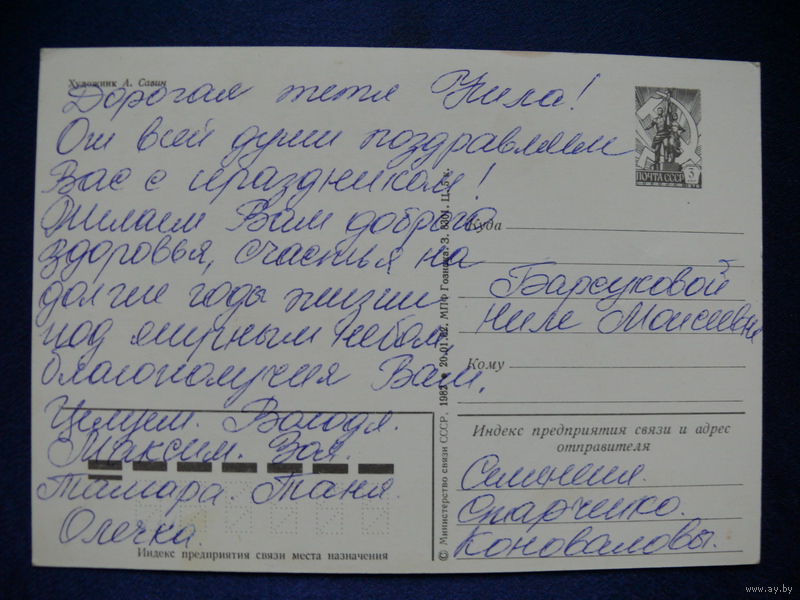 Художник А. Савин
Дорогая тетя Нила!
От всей души поздравляем
Вас с праздником!
Желаем Вам доброго
здоровья, счастья на
долгие годы жизни
под мирным небом,
благополучия Вам.
Целуем. Володя.
Максим. Зоя.
Тамара. Таня.
Олечка.
Индекс предприятия связи места назначения
© Министерство связи СССР, 1982 20.01.82. МПФ Гознака. З. Ц. 5 к.
ПОЧТА СССР
Куда
Барсуковой
Ниле Моисеевне
Кому
Индекс предприятия связи и адрес
отправителя
Семьи
Старченко.
Коноваловы.
www.ay.by